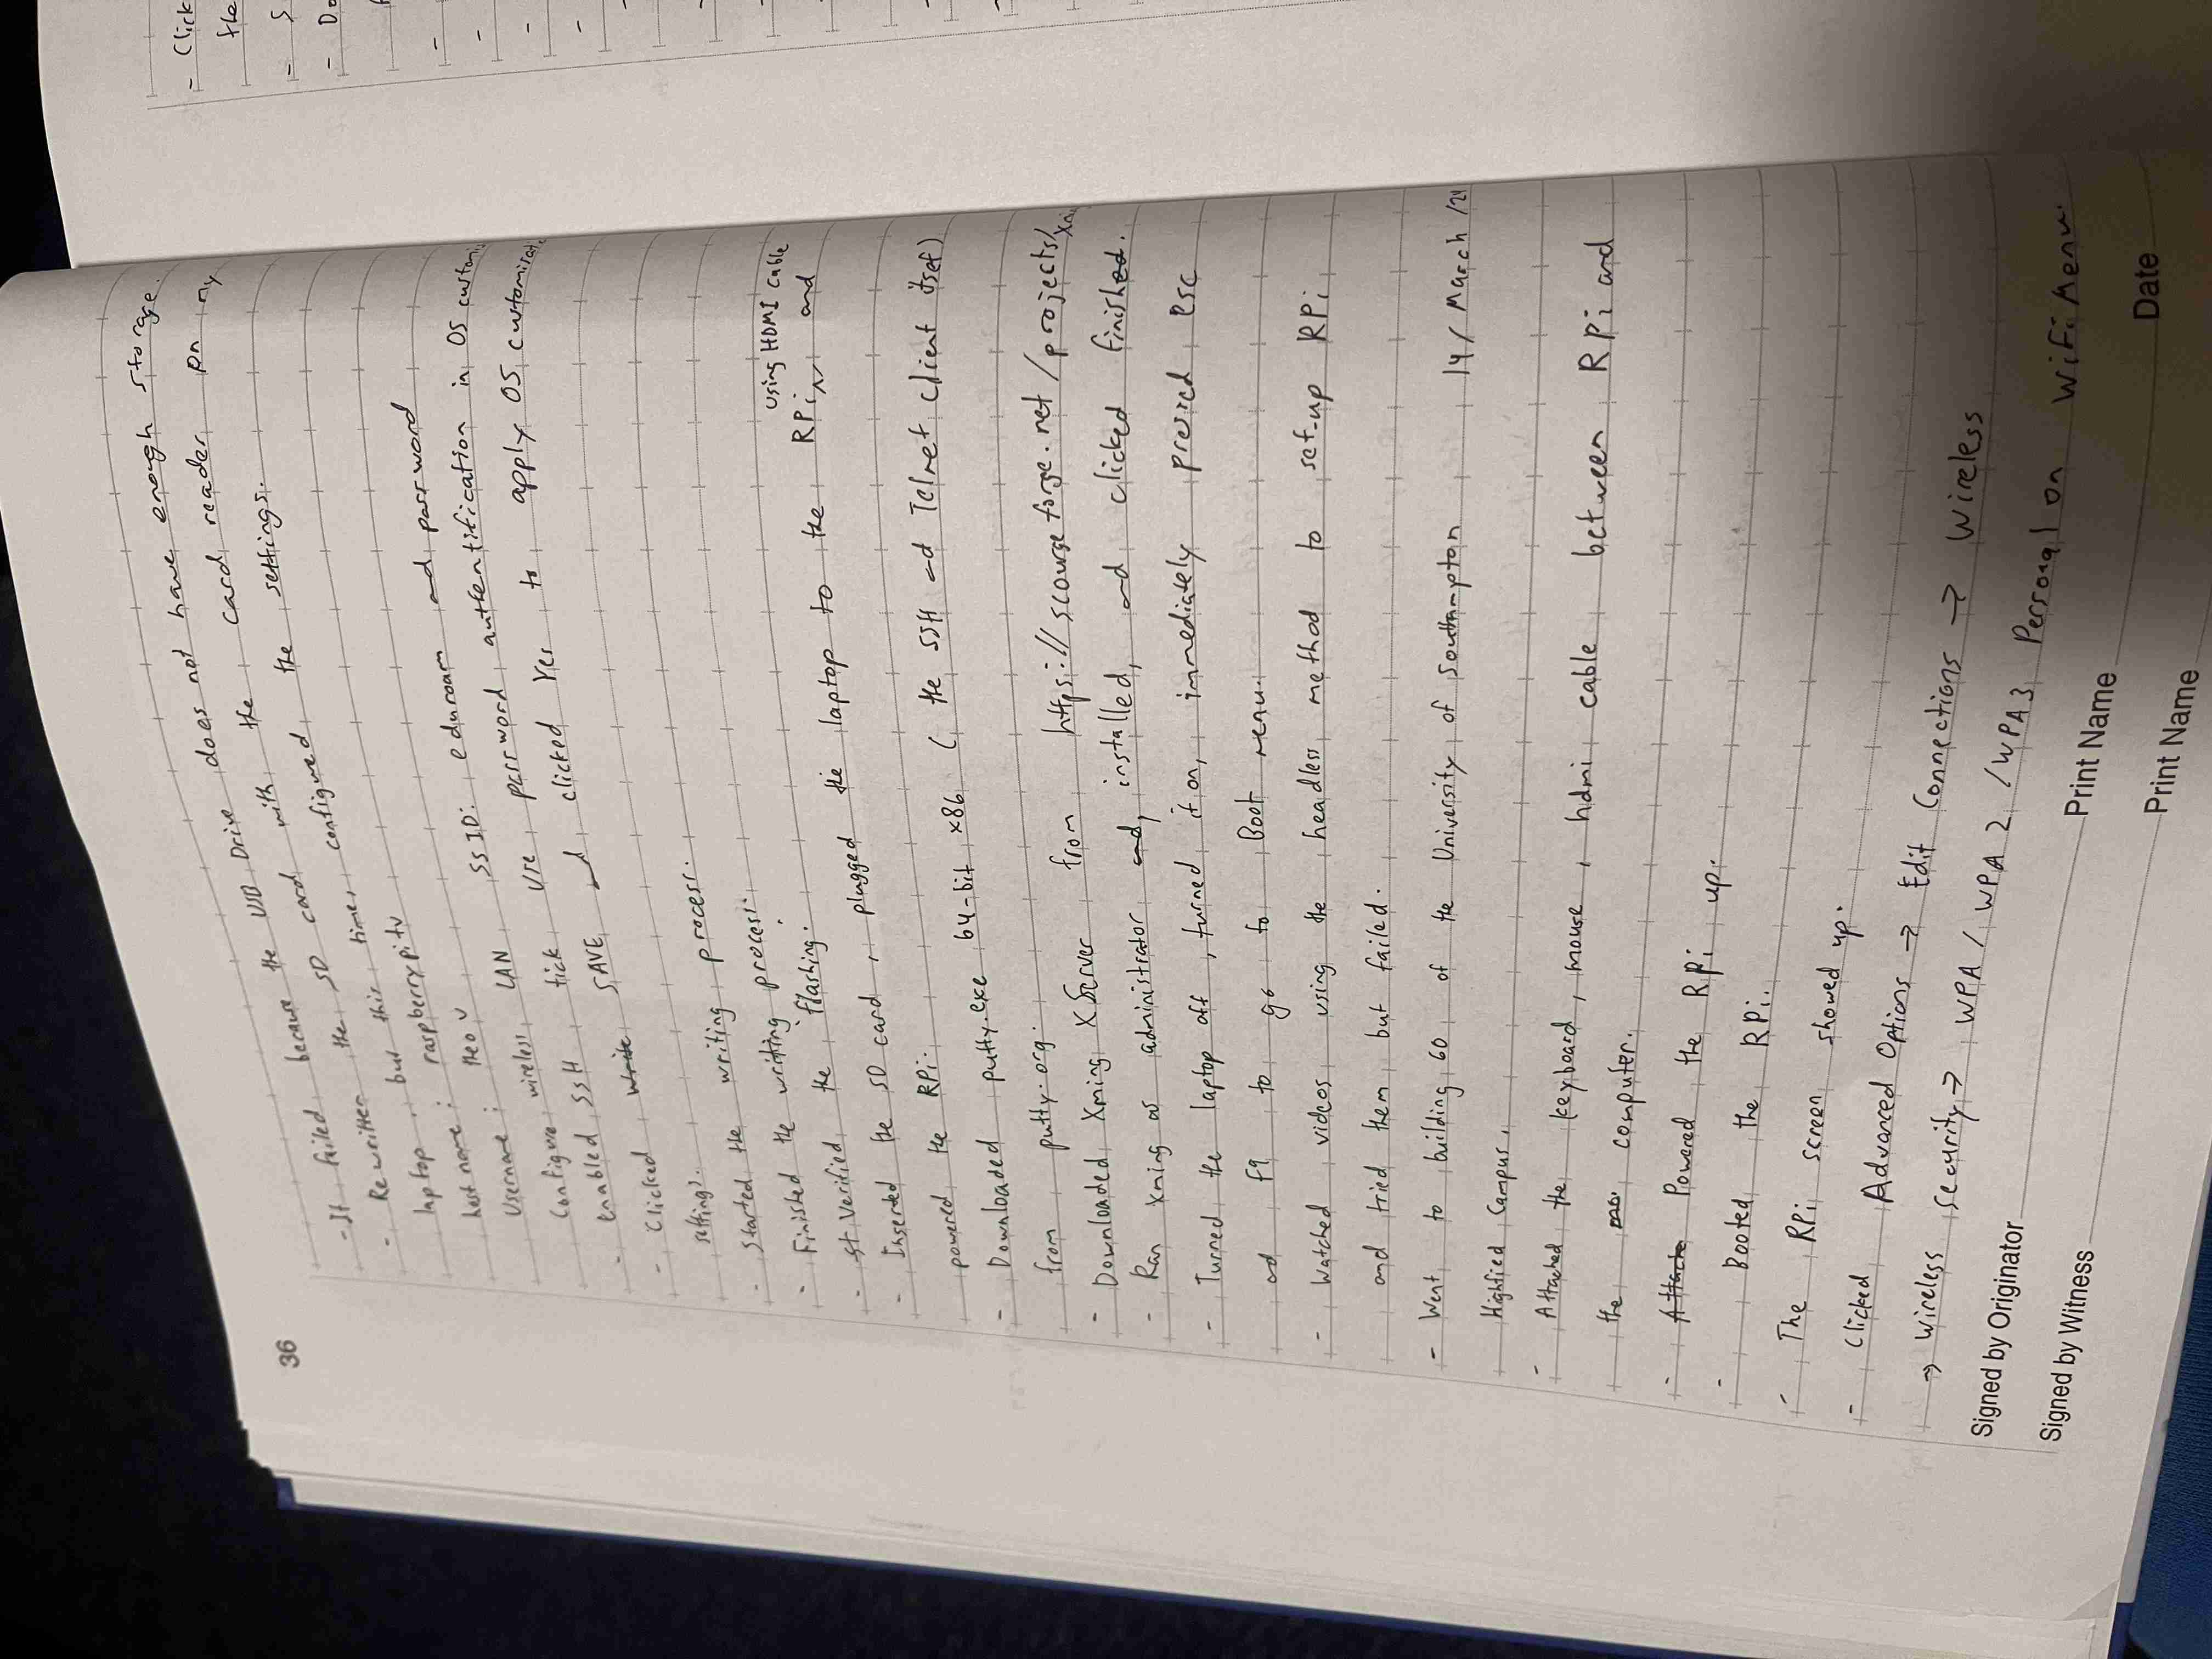 36
- It failed because the USB Drive does not have enough storage.
- Rewritten the SD card with the card reader on my
laptop, but this time, configured the settings.
host name: raspberrypitv
Username: theo v
Configure wireless LAN SSID: eduroam and password
- enabled SSH, tick Use password authentification in OS customis
- Clicked Write SAVE and clicked Yes to apply OS customisati
settings.
- Started the writing process.
- Finished the writing process.
- st Verified the flashing.
using HDMI cable
- Inserted the SD card, plugged the laptop to the RPi and
powered the RPi.
- Downloaded putty.exe 64-bit x86 (the SSH and Telnet client itsef)
from putty.org.
- Downloaded Xming XServer from https://scourgeforge.net/projects/xmi
- Ran Xming as administrator and, installed, and clicked finished.
- Turned the laptop off, turned it on, immediately pressed esc
and f9 to go to Boot menu.
- Watched videos using the headless method to set-up RPi
and tried them but failed.
- Went to building 60 of the University of Southampton 14/March/24
Highfied Campus.
- Attached the keyboard, mouse, hdmi cable between RPi and
the mo. computer.
- Attache Powered the RPi up.
- Booted the RPi.
- The RPi screen showed up.
- Clicked Advanced Options → Edit Connections → Wireless
→ Wireless security → WPA / WPA2 / WPA3 Personal on WiFi Menu.
Signed by Originator Print Name Date
Signed by Witness Print Name
- Click
the
- S
- Do